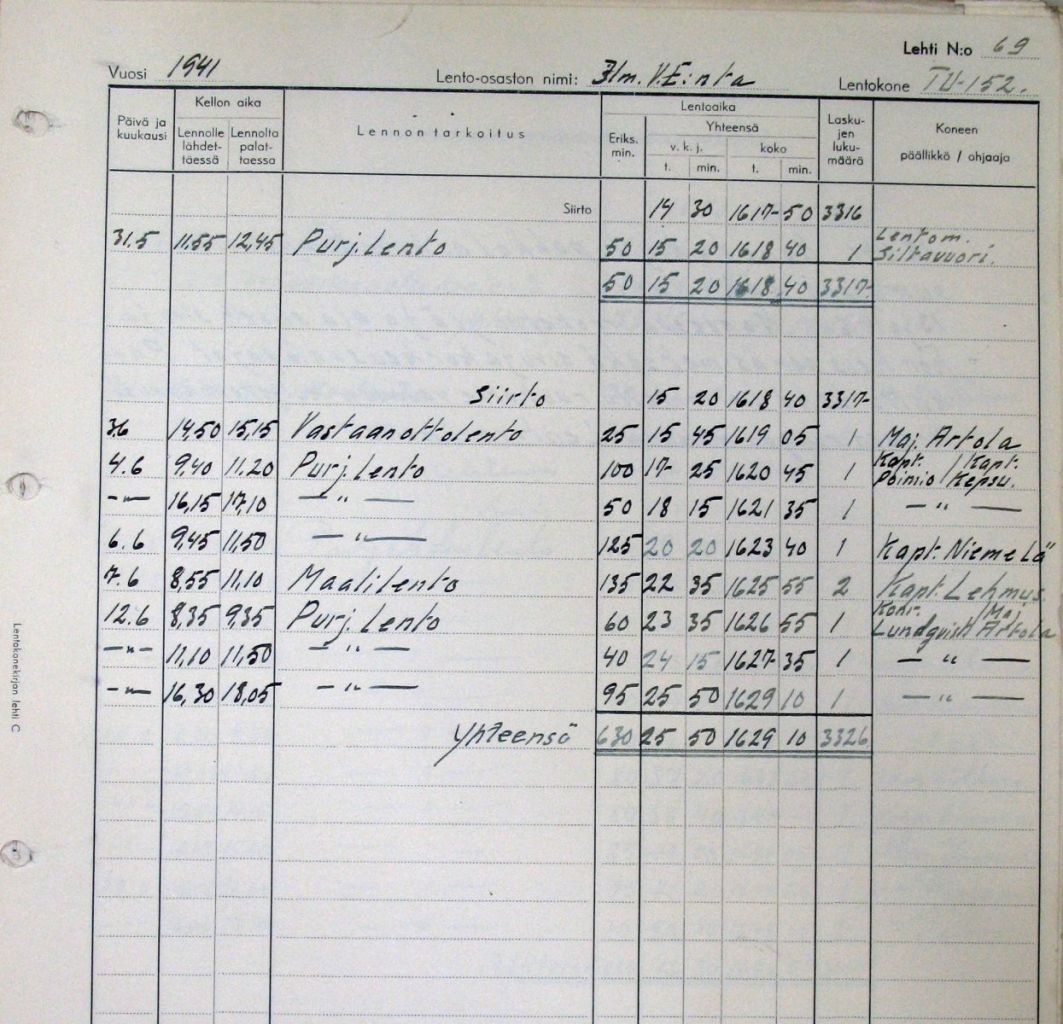 Lehti N:o 69
Vuosi 1941 Lento-osaston nimi: 3/m. V.E:nta Lentokone TU-152.
Päivä ja kuukausi Kellon aika Lennolle lähdettäessä Lennolta palattaessa Lennon tarkoitus Lentoaika Eriks. min. Yhteensä v. k. j. t. min. koko t. min. Laskujen lukumäärä Koneen päällikkö / ohjaaja
Siirto 14 30 1617 50 3316
31.5 11.55 12.45 Purj.lento 50 15 20 1618 40 1 Lentom. Siltavuori.
50 15 20 1618 40 3317
Siirto 15 20 1618 40 3317
3.6 14,50 15,15 Vastaanottolento 25 15 45 1619 05 1 Maj. Artola
4.6 9.40 11.20 Purj.lento 100 17 25 1620 45 1 Kapt. Poimio / Kapt. Kepsu.
—"— 16,15 17,10 —"— 50 18 15 1621 35 1 —"—
6.6 9,45 11,50 —"— 125 20 20 1623 40 1 Kapt. Niemelä
7.6 8,55 11,10 Maalilento 135 22 35 1625 55 2 Kapt. Lehmus.
12.6 8,35 9,35 Purj.lento 60 23 35 1626 55 1 Konr. Lundquist / Maj. Artola
—"— 11,10 11,50 —"— 40 24 15 1627 35 1 —"—
—"— 16,30 18,05 —"— 95 25 50 1629 10 1 —"—
Yhteensä 630 25 50 1629 10 3326
Lentokonekirjan lehti C